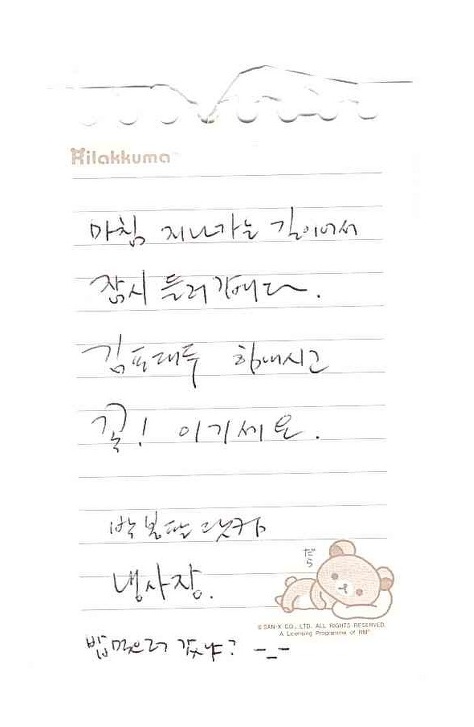 Rilakkuma
마침 지나가는 길이어서
잠시 들러 갑니다.
김포대두 힘내시고
꼭! 이기세요.
박봉팔 닷커
냉사장.
だら
© SAN-X CO., LTD. ALL RIGHTS RESERVED.
A Licensing Programme of RIP
밥 먹으러 갔냐? -_-